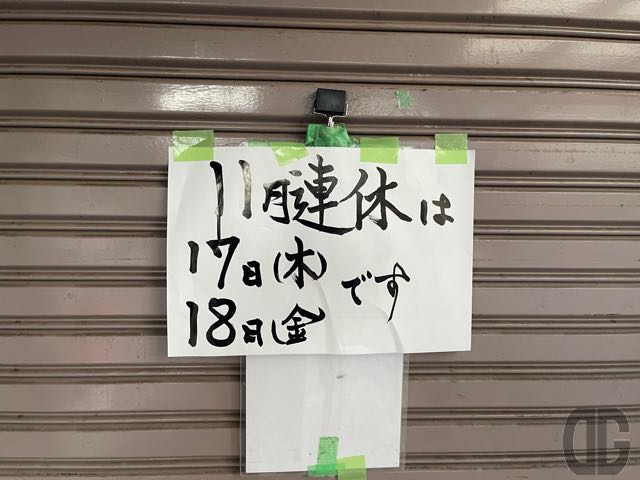 11月連休は
17日(木)
18日(金)
です